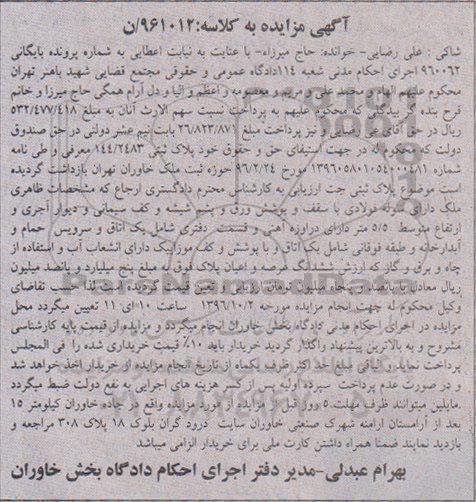 آگهی مزایده به کلاسه:۹۶۱۰۱۲/ن
شاکی : علی رضایی- خوانده: حاج میرزاه- با عنایت به نیابت اعطایی به شماره پرونده بایگانی
۹۶۰۰۶۲ اجرای احکام مدنی شعبه ۱۱۴دادگاه عمومی و حقوقی مجتمع قضایی شهید باهنر تهران
محکوم علیهم الهام و محمد علی و مریم و معصومه و اعظم و الیا و دل آرام همگی حاج میرزا و خانم
قرح بنده در پیلدکی که محکوم علیهم به پرداخت نسبت سهم الارث آنان به مبلغ ۵۳۲/۴۷۷/۴۱۸
ریال در حق آقای علی رضایی و نیز پرداخت مبلغ ۲۶/۸۲۳/۸۷۱ بابت نیم عشر دولتی در حق صندوق
دولت که محکوم له در جهت استیفای حق و حقوق خود پلاک ثبتی ۱۴۴/۲۴۸۳ معرفی و طی نامه
شماره ۱۳۹۶۰۵۸۰۱۰۵۴۰۰۰۴۸۱ مورخ ۹۶/۲/۲۴ حوزه ثبت ملک خاوران تهران بازداشت گردیده
است موضوع پلاک ثبتی جت ارزیابی به کارشناس محترم دادگستری ارجاع که مشخصات ظاهری
ملک دارای سوله فولادی با سقف و پوشش ورق و پشم شیشه و کف سیمانی و دیوار آجری و
ارتفاع متوسط ۵/۵ متر دارای دروازه آهنی و قسمت دفتری شامل یک اتاق و سرویس حمام و
آبدارخانه و طبقه فوقانی شامل یک اتاق و با پوشش و کف موزائیک دارای انشعاب آب و استفاده از
چاه و برق و گاز که ارزش ملک عرصه و اعیان پلاک فوق به مبلغ پنج میلیارد و پانصد میلیون
ریال معادل پانصد و پنجاه میلیون تومان ارزیابی و تعیین قیمت گردیده است لذا حسب تقاضای
وکیل محکوم له جهت انجام مزایده مورخه ۱۳۹۶/۱۰/۲ ساعت ۱۰ الی ۱۱ تعیین میگردد محل
مزایده در اجرای احکام مدنی دادگاه بخش خاوران انجام میگردد و مزایده از قیمت پایه کارشناسی
مشروح و به بالاترین پیشنهاد واگذار گردید خریدار باید ۱۰٪ قیمت خریداری شده را فی المجلس
پرداخت نماید و الباقی مبلغ اخذ اکثر ظرف یکماه از تاریخ انجام مزایده از خریدار اخذ خواهد شد
و در صورت عدم پرداخت سپرده اولیه پس از کسر هزینه های اجرایی به نفع دولت ضبط میگردد
.مایلین میتوانند ظرف مهلت ۵ روز قبل از مزایده از مورد مزایده واقع در جاده خاوران کیلومتر ۱۵
بعد از آرامستان ارامنه شهرک صنعتی خاوران سایت درود گران بلوک ۱۸ پلاک ۳۰۸ مراجعه و
بازدید نمایند ضمنا همراه داشتن کارت ملی برای خریدار الزامی میباشد
بهرام عبدلی-مدیر دفتر اجرای احکام دادگاه بخش خاوران